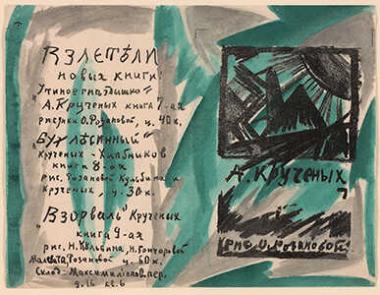 Взлетѣли
новых книги:
"Утиное гнѣздышко"
А. Крученых книга 7-ая
рисунки О. Розановой, ц. 40 к.
Бух лѣсинный
крученых - Хлѣбников
книга 8-ая
рис. Розановой Кульбина и
Крученых, ц. 30 к.
Взорваль Крученых
книга 9-ая
рис. Н. Кульбина, Н. Гончаровой
Розановой ц. 60 к.
Склад: пер.
д. 16 кв. 6
А. Крученых
рис О. Розановой